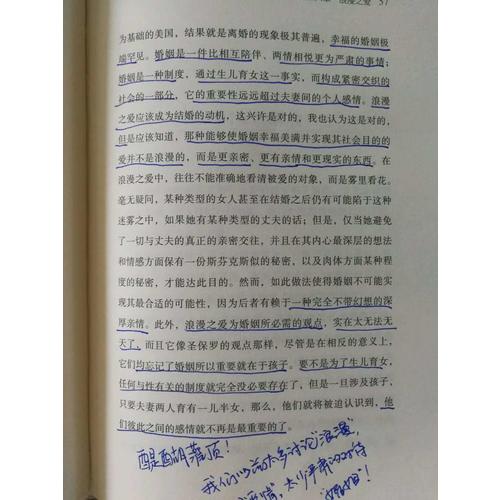 浪漫之爱 57
为基础的美国，结果就是离婚的现象极其普遍，幸福的婚姻极
端罕见。婚姻是一件比相互陪伴、两情相悦更为严肃的事情；
婚姻是一种制度，通过生儿育女这一事实，而构成紧密交织的
社会的一部分，它的重要性远远超过夫妻间的个人感情。浪漫
之爱应该成为结婚的动机，这兴许是对的，我也认为这是对的，
但是应该知道，那种能够使婚姻幸福美满并实现其社会目的的
爱并不是浪漫的，而是更亲密、更有亲情和更现实的东西。在
浪漫之爱中，往往不能准确地看清被爱的对象，而是雾里看花。
毫无疑问，某种类型的女人甚至在结婚之后仍有可能陷于这种
迷雾之中，如果她有某种类型的丈夫的话；但是，仅当她避免
了一切与丈夫的真正的亲密交往，并且在其内心最深层的想法
和情感方面保有一份斯芬克斯似的秘密，以及肉体方面某种程
度的秘密，才能达此目的。然而，如此做法使得婚姻不可能实
现其最合适的可能性，因为后者有赖于一种完全不带幻想的深
厚亲情。此外，浪漫之爱为婚姻所必需的观点，实在太无法无
天了，而且它像圣保罗的观点那样，尽管是在相反的意义上，
它们均忘记了婚姻所以重要就在于孩子。要不是为了生儿育女，
任何与性有关的制度就完全没必要存在了，但是一旦涉及孩子，
只要夫妻两人育有一儿半女，那么，他们就将被迫认识到，他
们彼此之间的感情就不再是最重要的了。
醍醐灌顶！
我们以前太多讨论"浪漫"，
爱情，太少严肃的对待
婚姻！